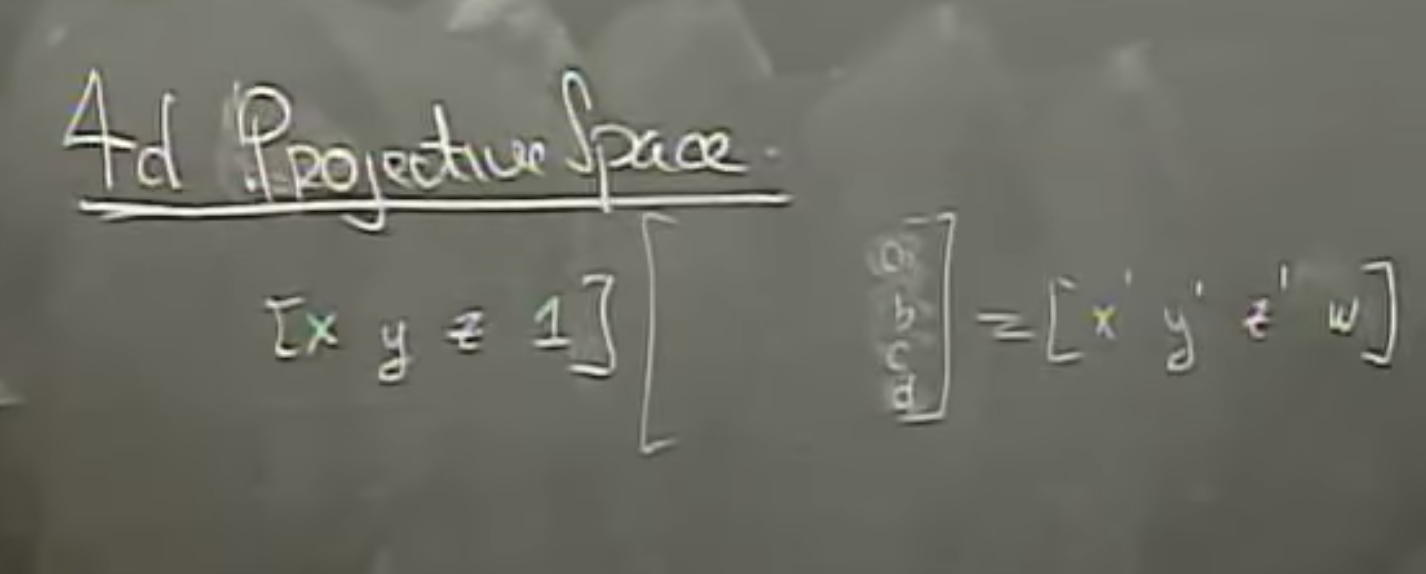 4d Projective Space.
[x y z 1] [ a b c d ] = [x' y' z' w]